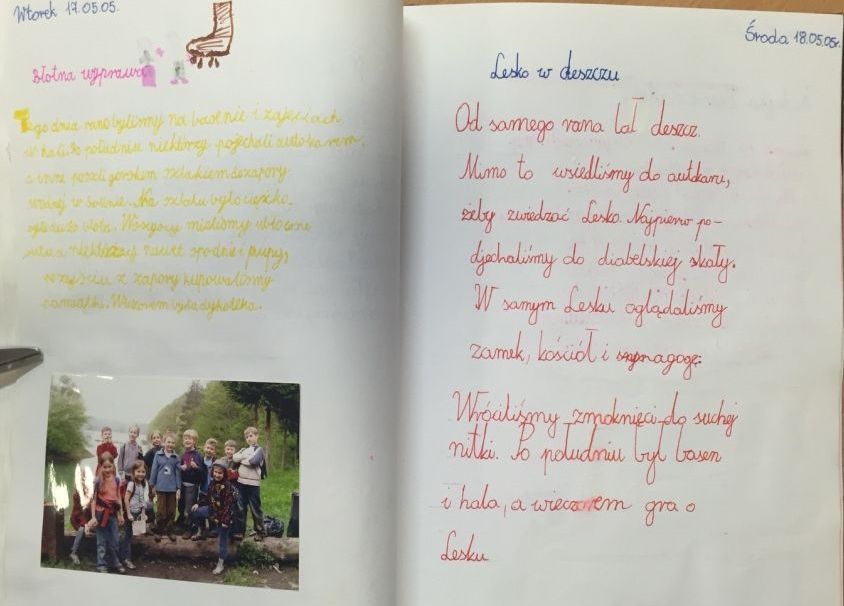 Wtorek 17.05.05.
Błotna wyprawa
Tego dnia rano byliśmy na basenie i zajęciach
w hali. Po południu niektórzy pojechali autokarem,
a inni poszli górskim szlakiem do zapory
wodnej w Solinie. Na szlaku było ciężko,
było dużo błota. Wszyscy mieliśmy ubłocone
buty a niektórzy nawet spodnie i pupy,
Po zejściu z zapory kupowaliśmy
pamiątki. Wieczorem była dyskoteka.
Środa 18.05.05r.
Lesko w deszczu
Od samego rana lał deszcz.
Mimo to wsiedliśmy do autokaru,
żeby zwiedzać Lesko. Najpierw po-
djechaliśmy do diabelskiej skały.
W samym Lesku oglądaliśmy
zamek, kościół i synagogę.
Wróciliśmy zmoknięci do suchej
nitki. Po południu był basen
i hala, a wieczorem gra o
Lesku